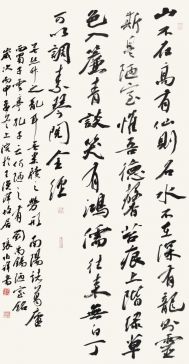 山不在高有仙則名水不在深有龍則靈
斯是陋室惟吾德馨苔痕上階綠草
色入簾青談笑有鴻儒往来無白丁
可以調素琴閱金經
無絲竹之亂耳無案牘之勞形南陽諸葛廬
西蜀子雲亭孔子云何陋之有劉禹錫陋室銘
歲次丙申